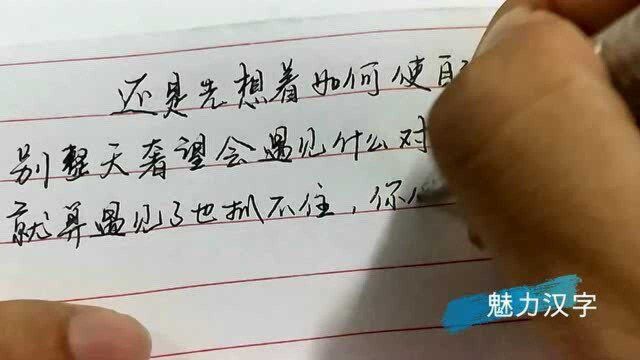 还是先想着如何使自
别整天奢望会遇见什么对
就算遇见了也抓不住，你
魅力汉字